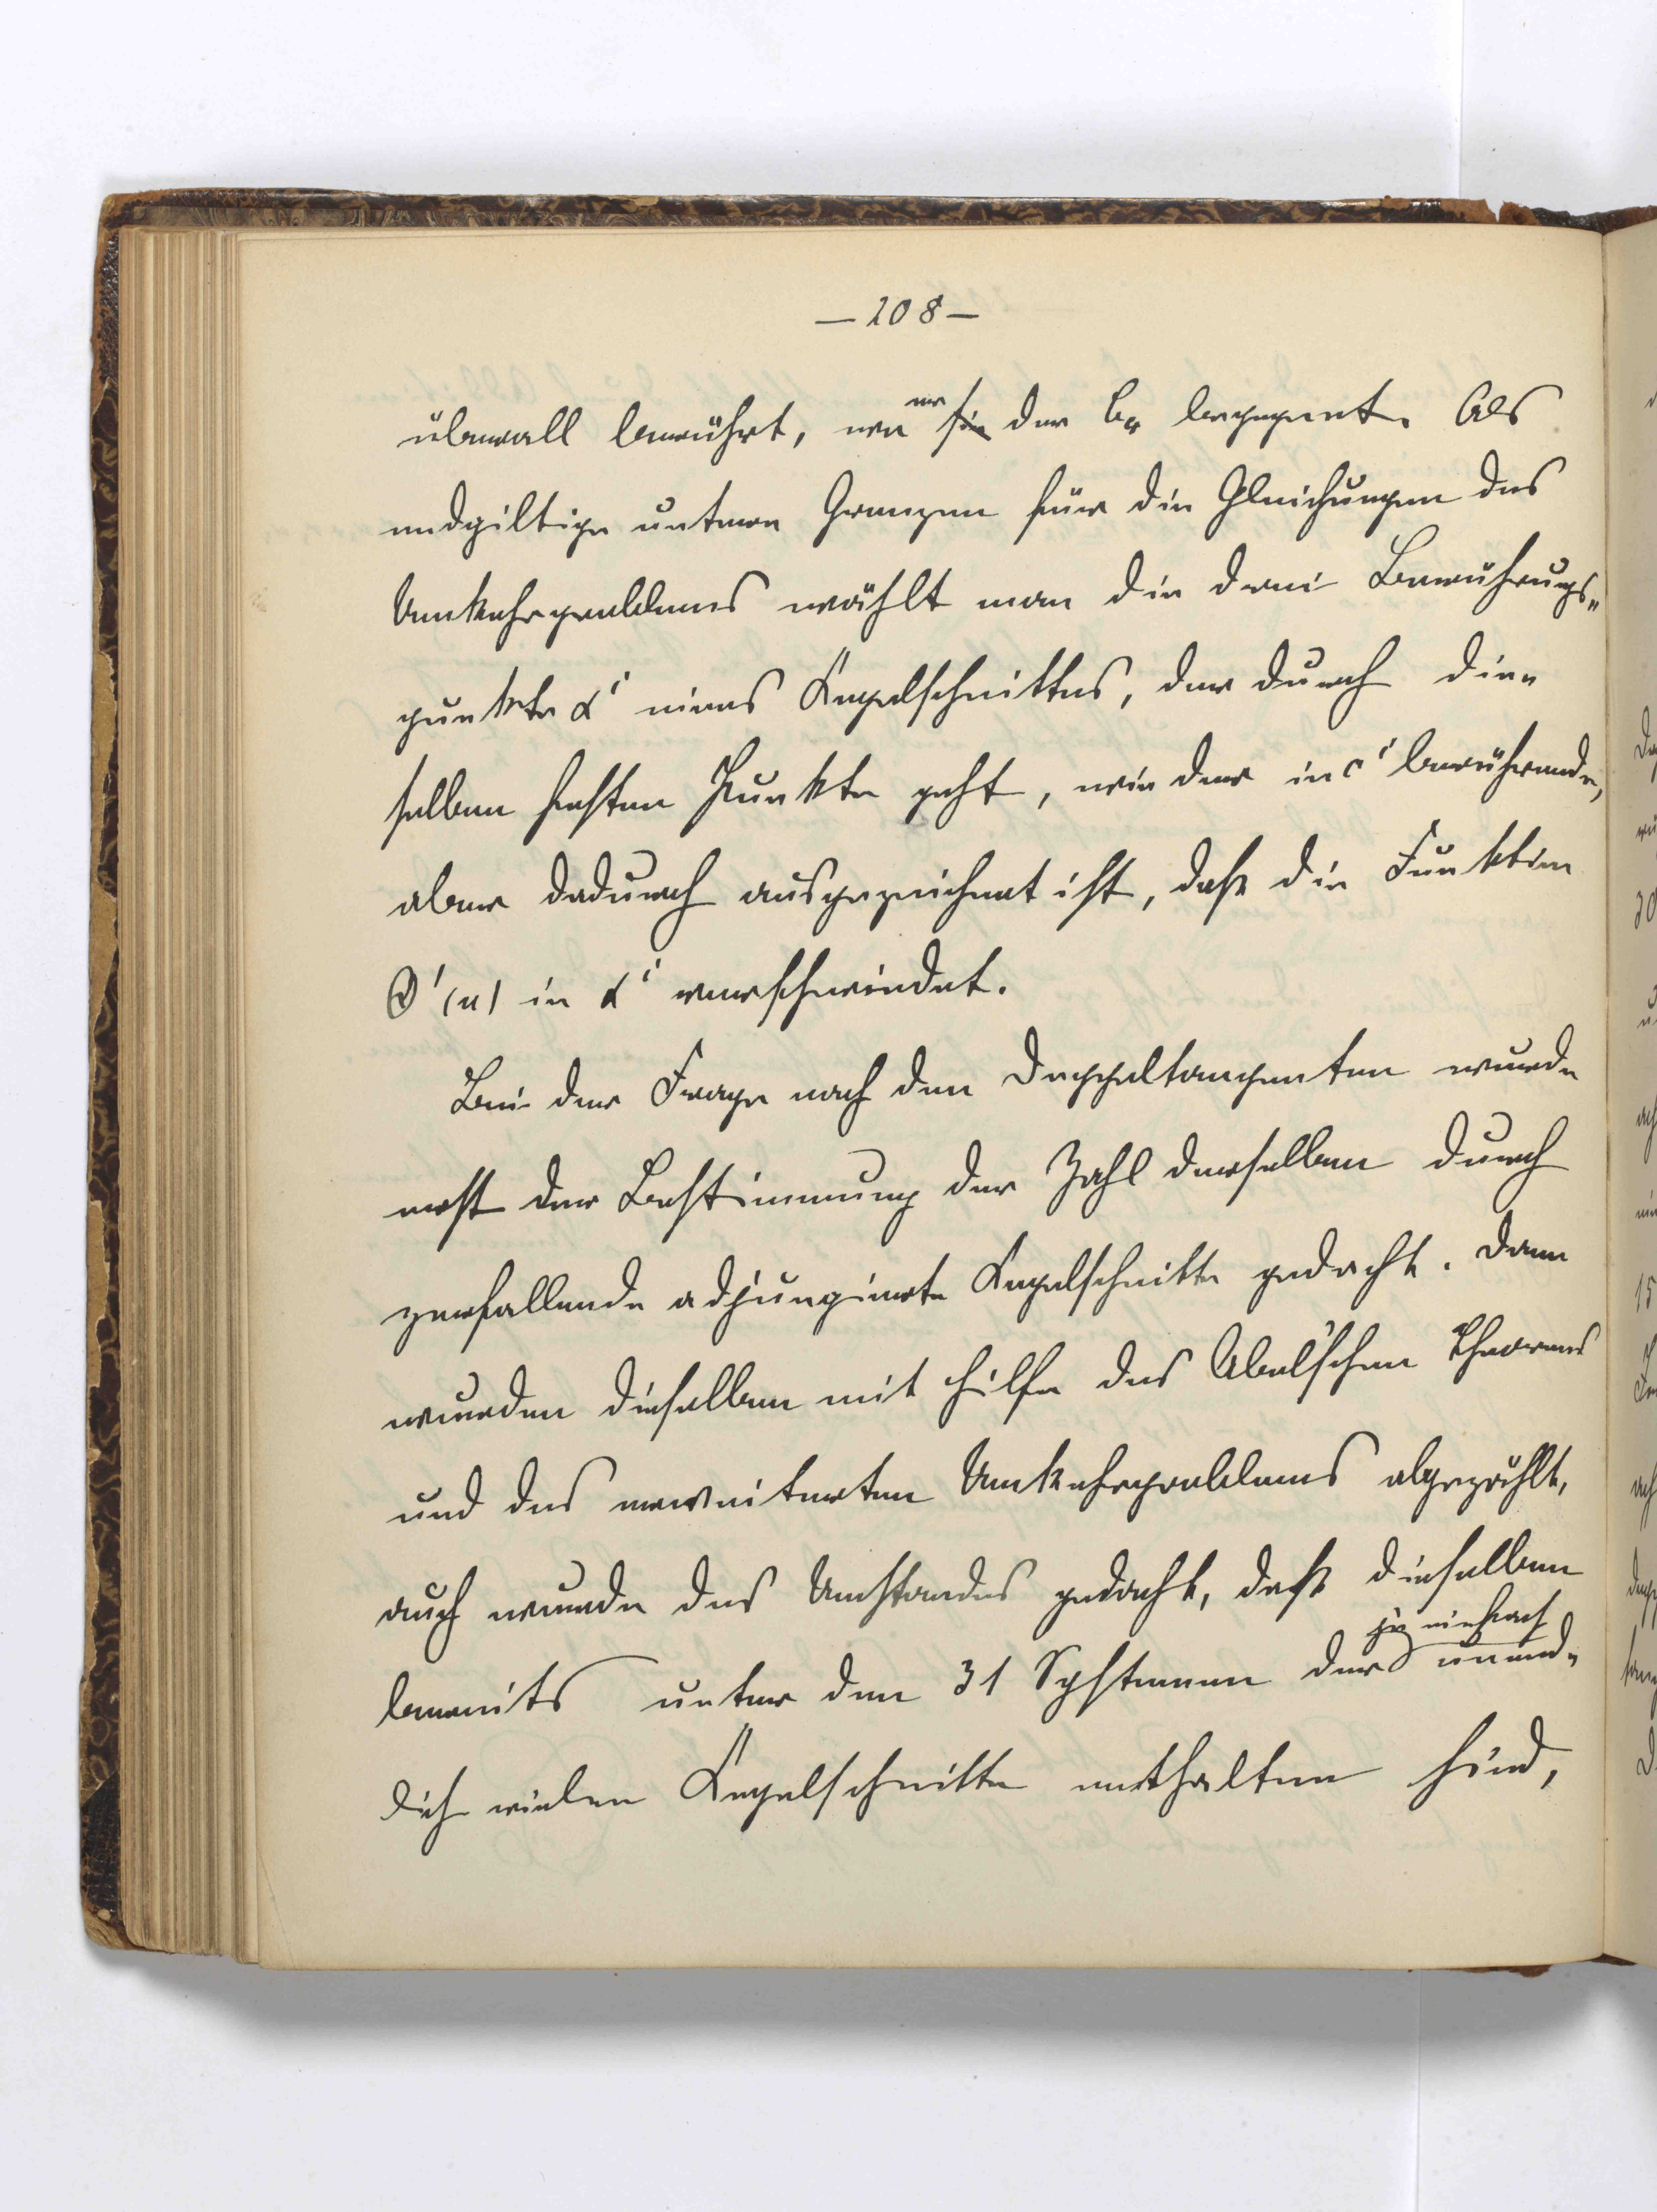 — 208 —
überall berührt, wo er der C₄ begegnet. Als
endgiltige untere Grenzen für die Gleichungen des
Umkehrproblems wählt man die drei Berührungs-
punkte α' eines Kegelschnittes, der durch die-
selben festen Punkte geht, wie der in c' berührende,
aber dadurch ausgezeichnet ist, daß die Funktion
Θ'(u) in α' verschwindet.
Bei der Frage nach den Doppeltangenten wurde
erst der Bestimmung der Zahl derselben durch
zerfallende adjungierte Kegelschnitte gedacht. Dann
wurden dieselben mit Hilfe des Abel'schen Theorems
und des erweiterten Umkehrproblems abgezählt,
auch wurde des Umstandes gedacht, daß dieselben
je einfach
bereits unter den 31 Systemen der unend-
lich vielen Kegelschnitte enthalten sind,